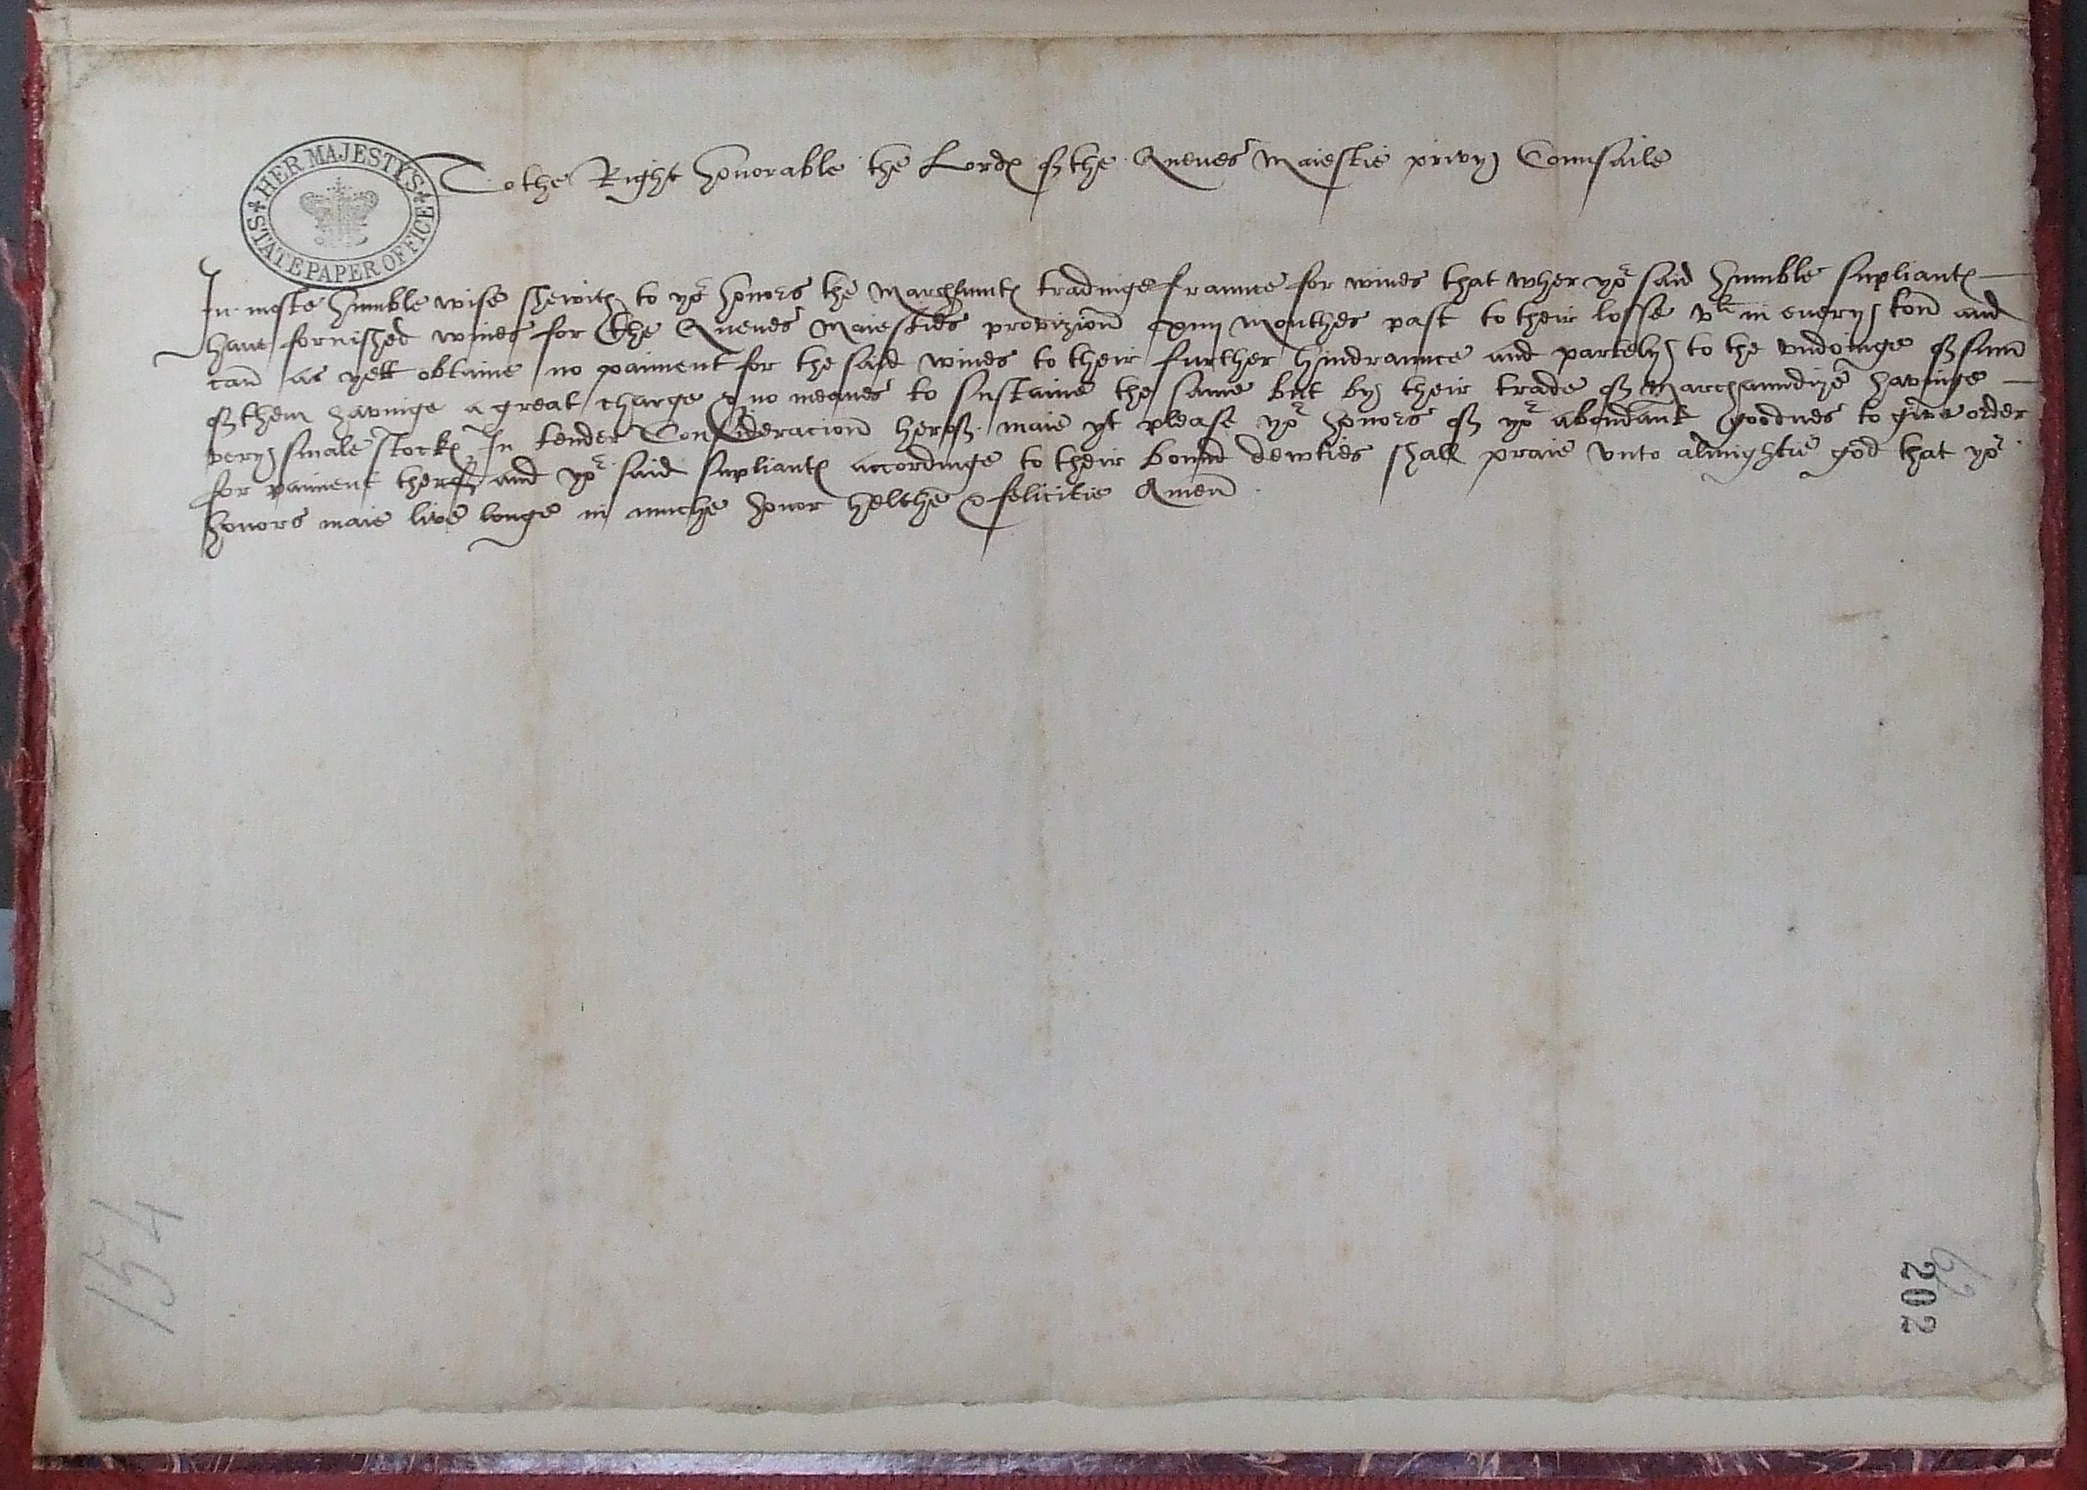 HER MAJESTY'S
STATE PAPER OFFICE
To the Right honorable the Lordes of the Quenes Maiestie privy Counsaile
In moste humble wise shewith to yor honors the Marchauntes tradinge fraunce for wines that wher yor said humble supliantes
have fornished wines for the Quenes Maiesties provizion xviij monthes past to their losse vli in every ton and
can as yett obtaine no paiment for the said wines to their further hindraunce and partely to the undoinge of sum
of them havinge a great charge & no meanes to sustaine the same but by their trade of Marchaundize havinge
very smale stockes In tender Consideracion herof maie yt please yor honors of yor abondant goodnes to give order
for paiment therof and yor said supliantes accordinge to their bound dewties shall praie unto almightie god that yor
honors maie live longe in muche honor helthe & felicitie Amen
154
202